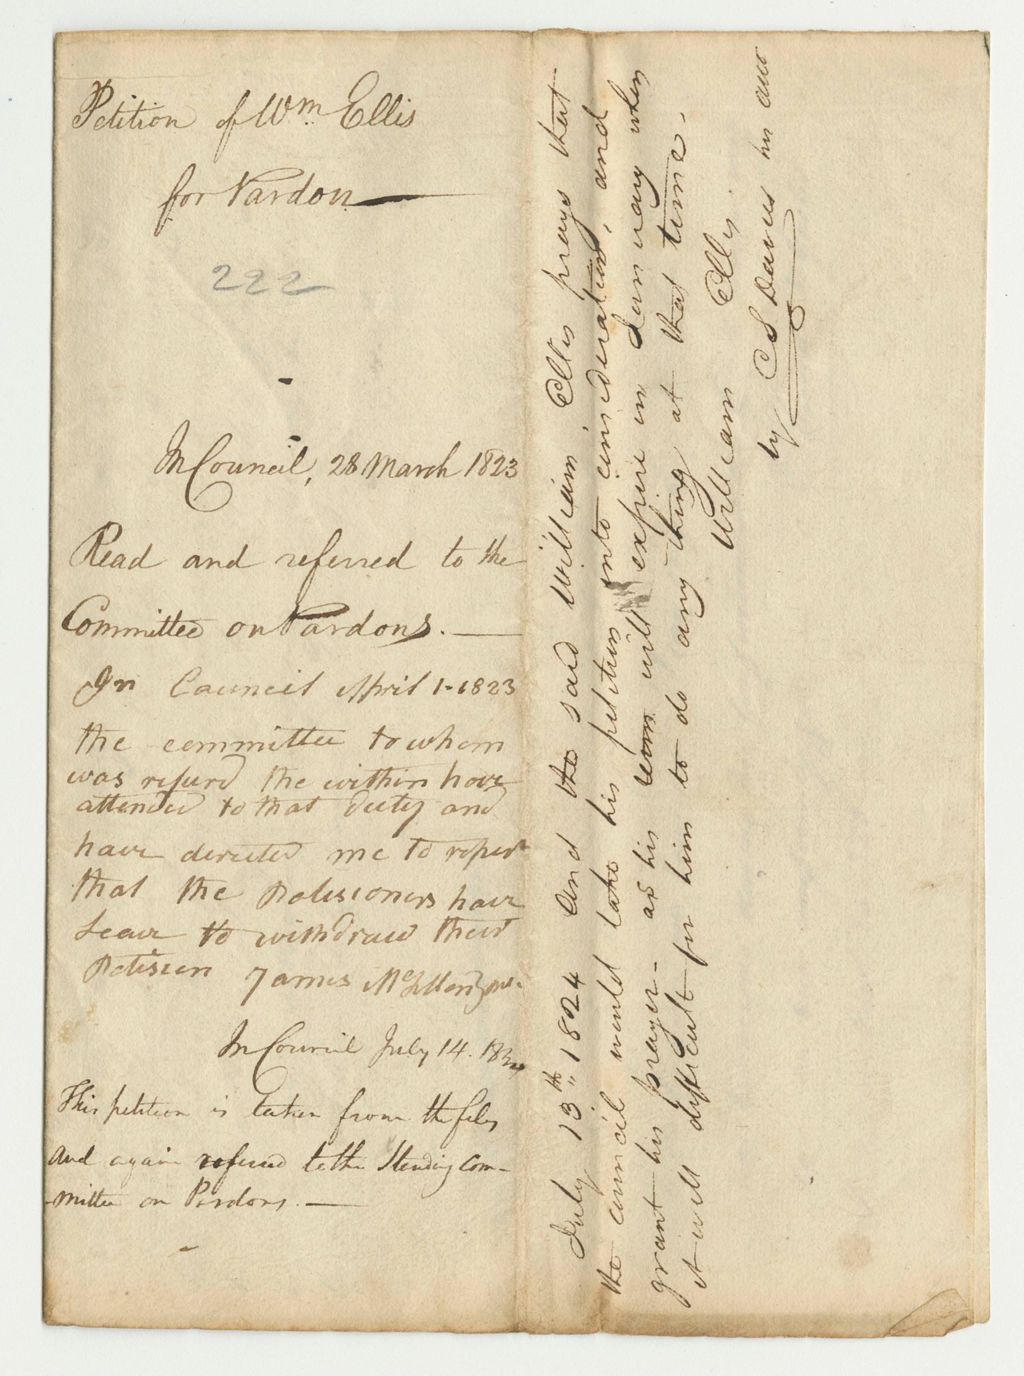 Petition of Wm Ellis
for Pardon
222
In Council, 28 March 1823
Read and referred to the
Committee on Pardons.
In Council April 1-1823
the committee to whom
was refurd the within have
attended to that duty and
have derected me to report
that the Petisioners have
Leave to withdraw their
Petision James
In Council July 14. 1824
This petition is taken from the files
and again referred to the Standing Com-
mittee on Pardons.
July 13th 1824 And the said William Ellis prays that
the council would take his petition into consideration, and
grant his prayer- as his term will expire in January when
it will difficult for him to do any thing at that time.
William Ellis
by C S Daveis his